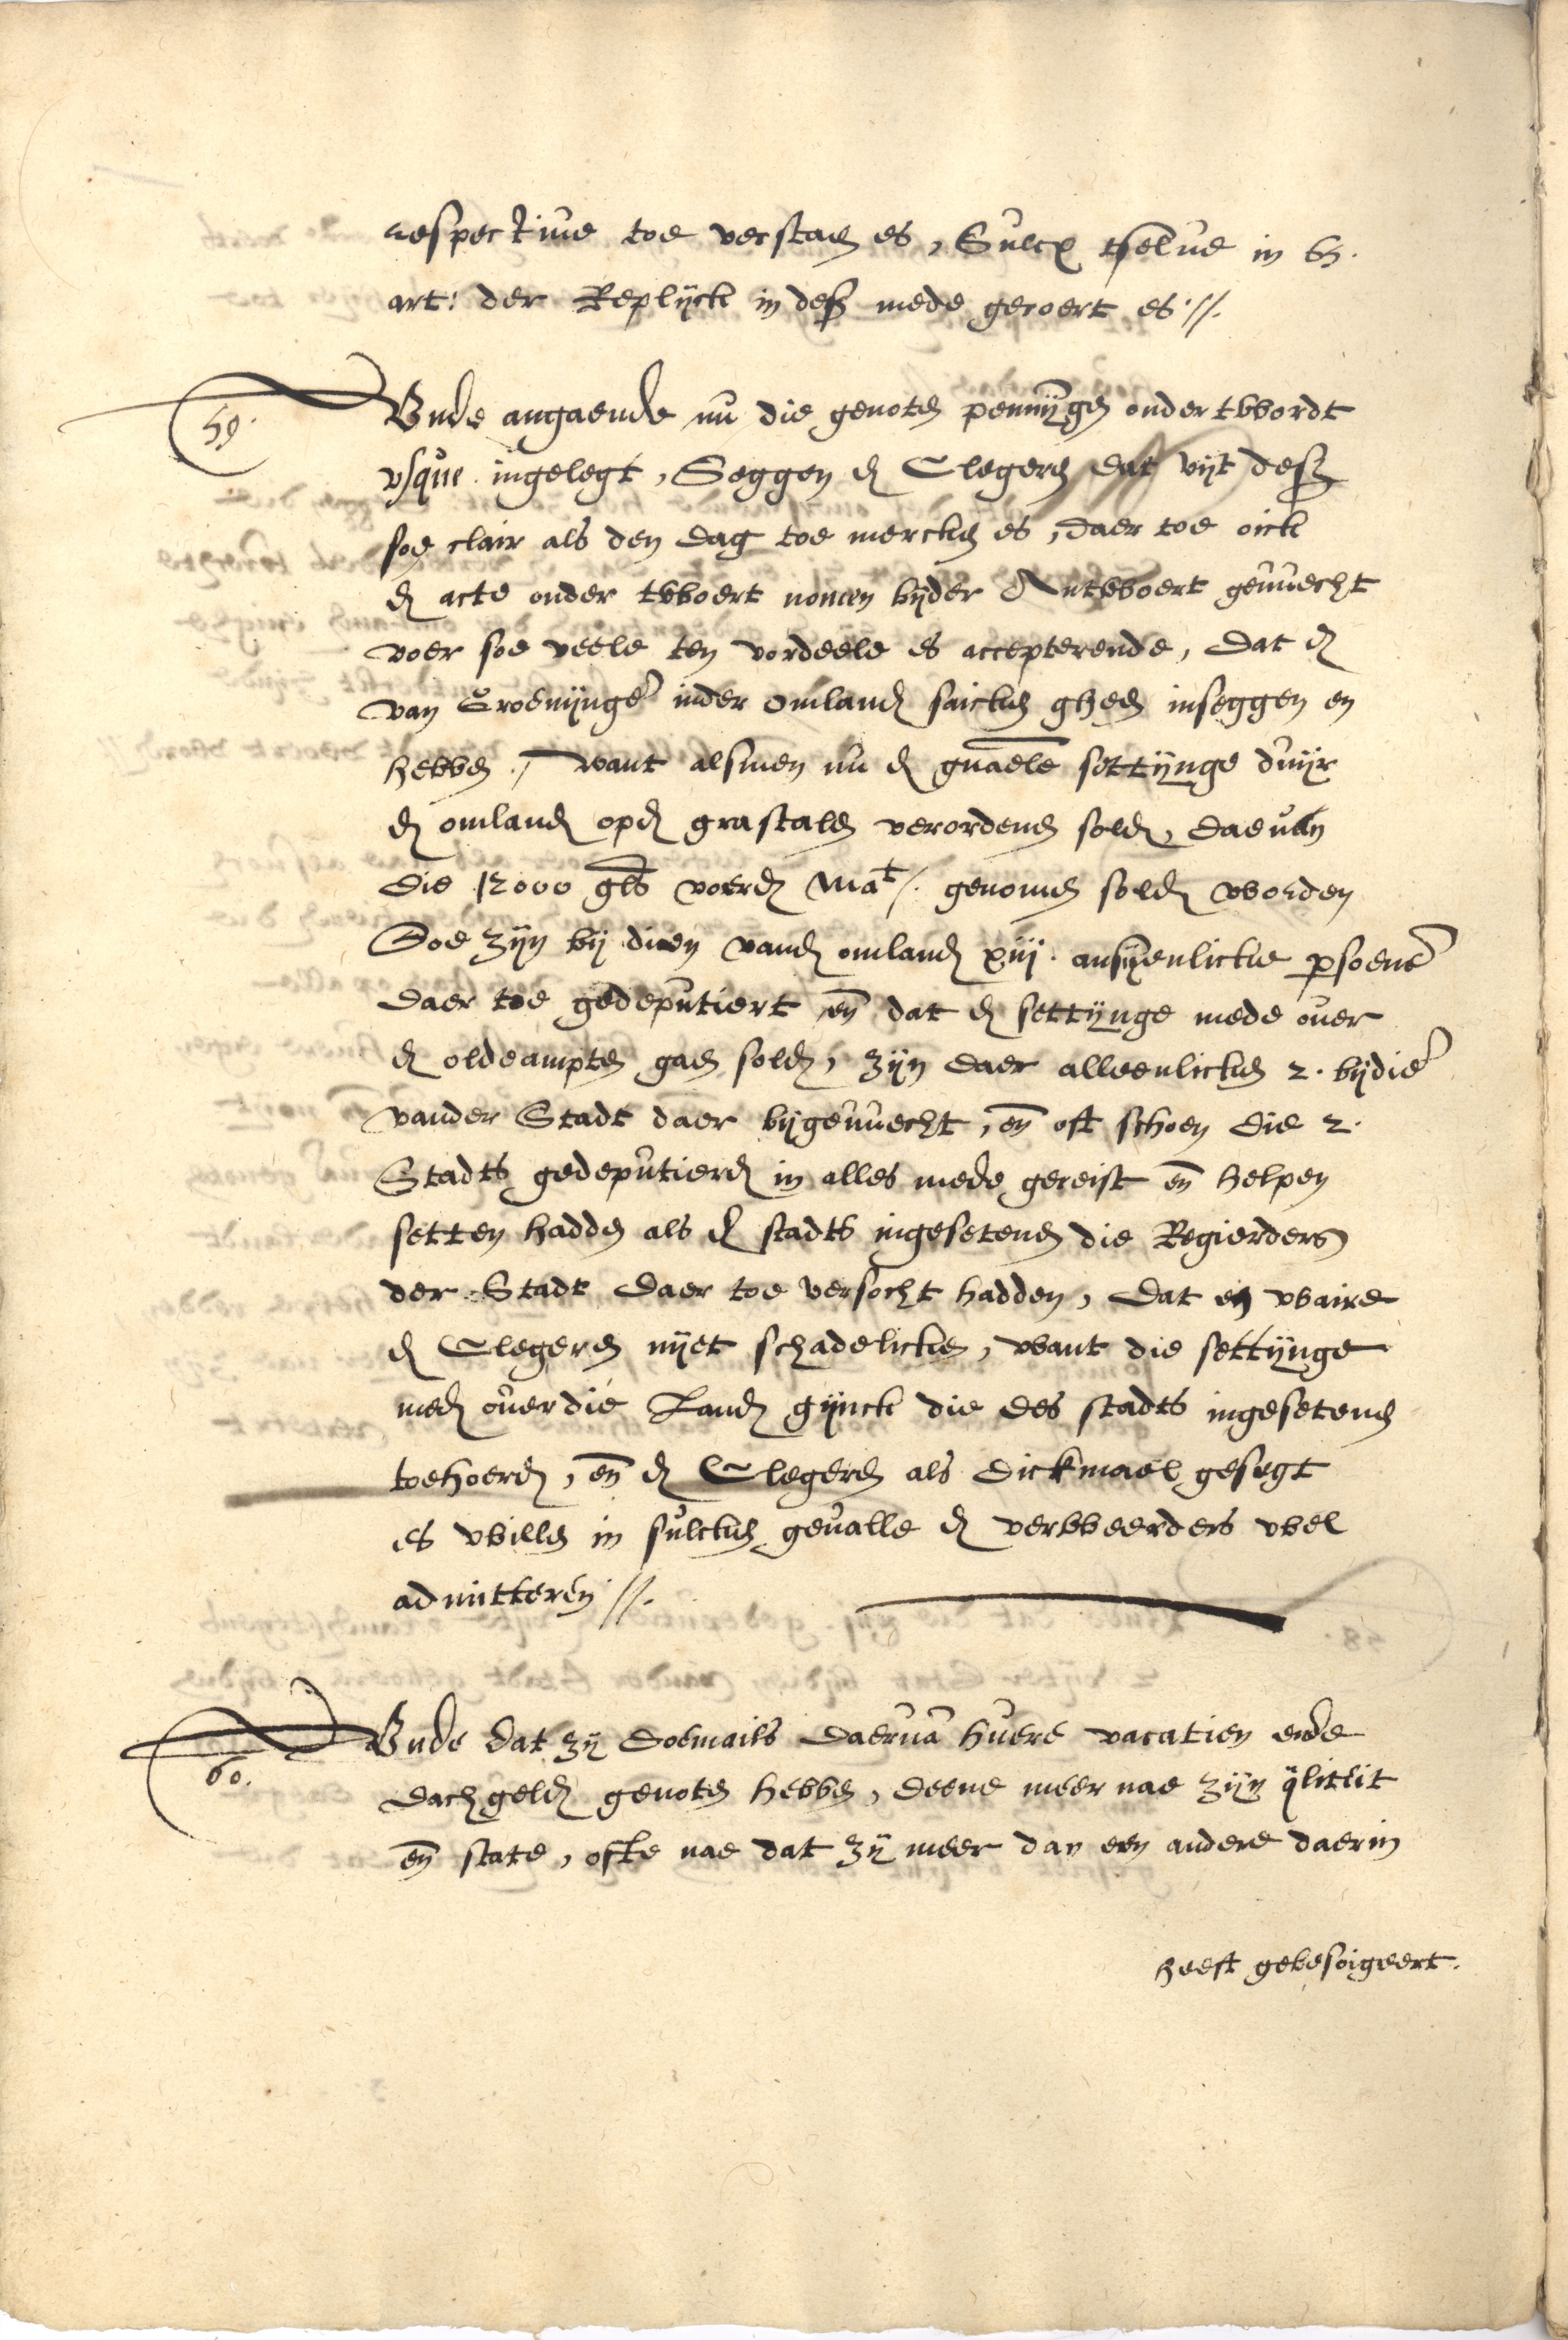 respective toe verstaen es, Sulcx tselve in 65.
art: der Replijck in desz mede geroert es //.
59.
Vnde angaende nu die genoten pennijgen onder twordt
vsque ingelegt, Seggen de Clegeren dat uijt desz
soe clair als den dag toe mercken es, daer toe oick
de acte onder twoert nomen bijder Antwoert gevuecht
voer soe veele ten vordeele es accepterende, dat de
van Groenijnge inder omlanden saicken gheen inseggen en
hebben, want alsmen nu de gnaele settijnge duijr
de omlanden opde grastalen verordenen solde, daeuan
die 12000 gls voerde Mat/. genomen solde worden
Soe zijn bij dien vande omlanden xiij. ansijenlicke psoene
daer toe gedeputiert en dat de settijnge mede ouer
de oldeampten gaen solde, zijn daer alleenlicken 2. bijdie
vander Stadt daer bijgevuecht, en oft schoen die 2.
Stadts gedeputierden in alles mede gereist en helpen
setten hadden als de stadts ingesetenen die Regierders
der Stadt daer toe versocht hadden, dat en waire
de Clegeren nijet schadelicken, want die settijnge
mede ouer die Landen gijnck die des stadts ingesetenen
toehoerden, en de Clegeren als dickmael gesegt
es willen in sulcken geualle de verweerders wel
admitteren //.
60.
Vnde dat zij doemails daerua huere vacatien ende
dachgelden genoten hebben, deene meer nae zijn qliteit
en state, ofte nae dat zij meer dan een andere daerin
heeft gebesoigeert.